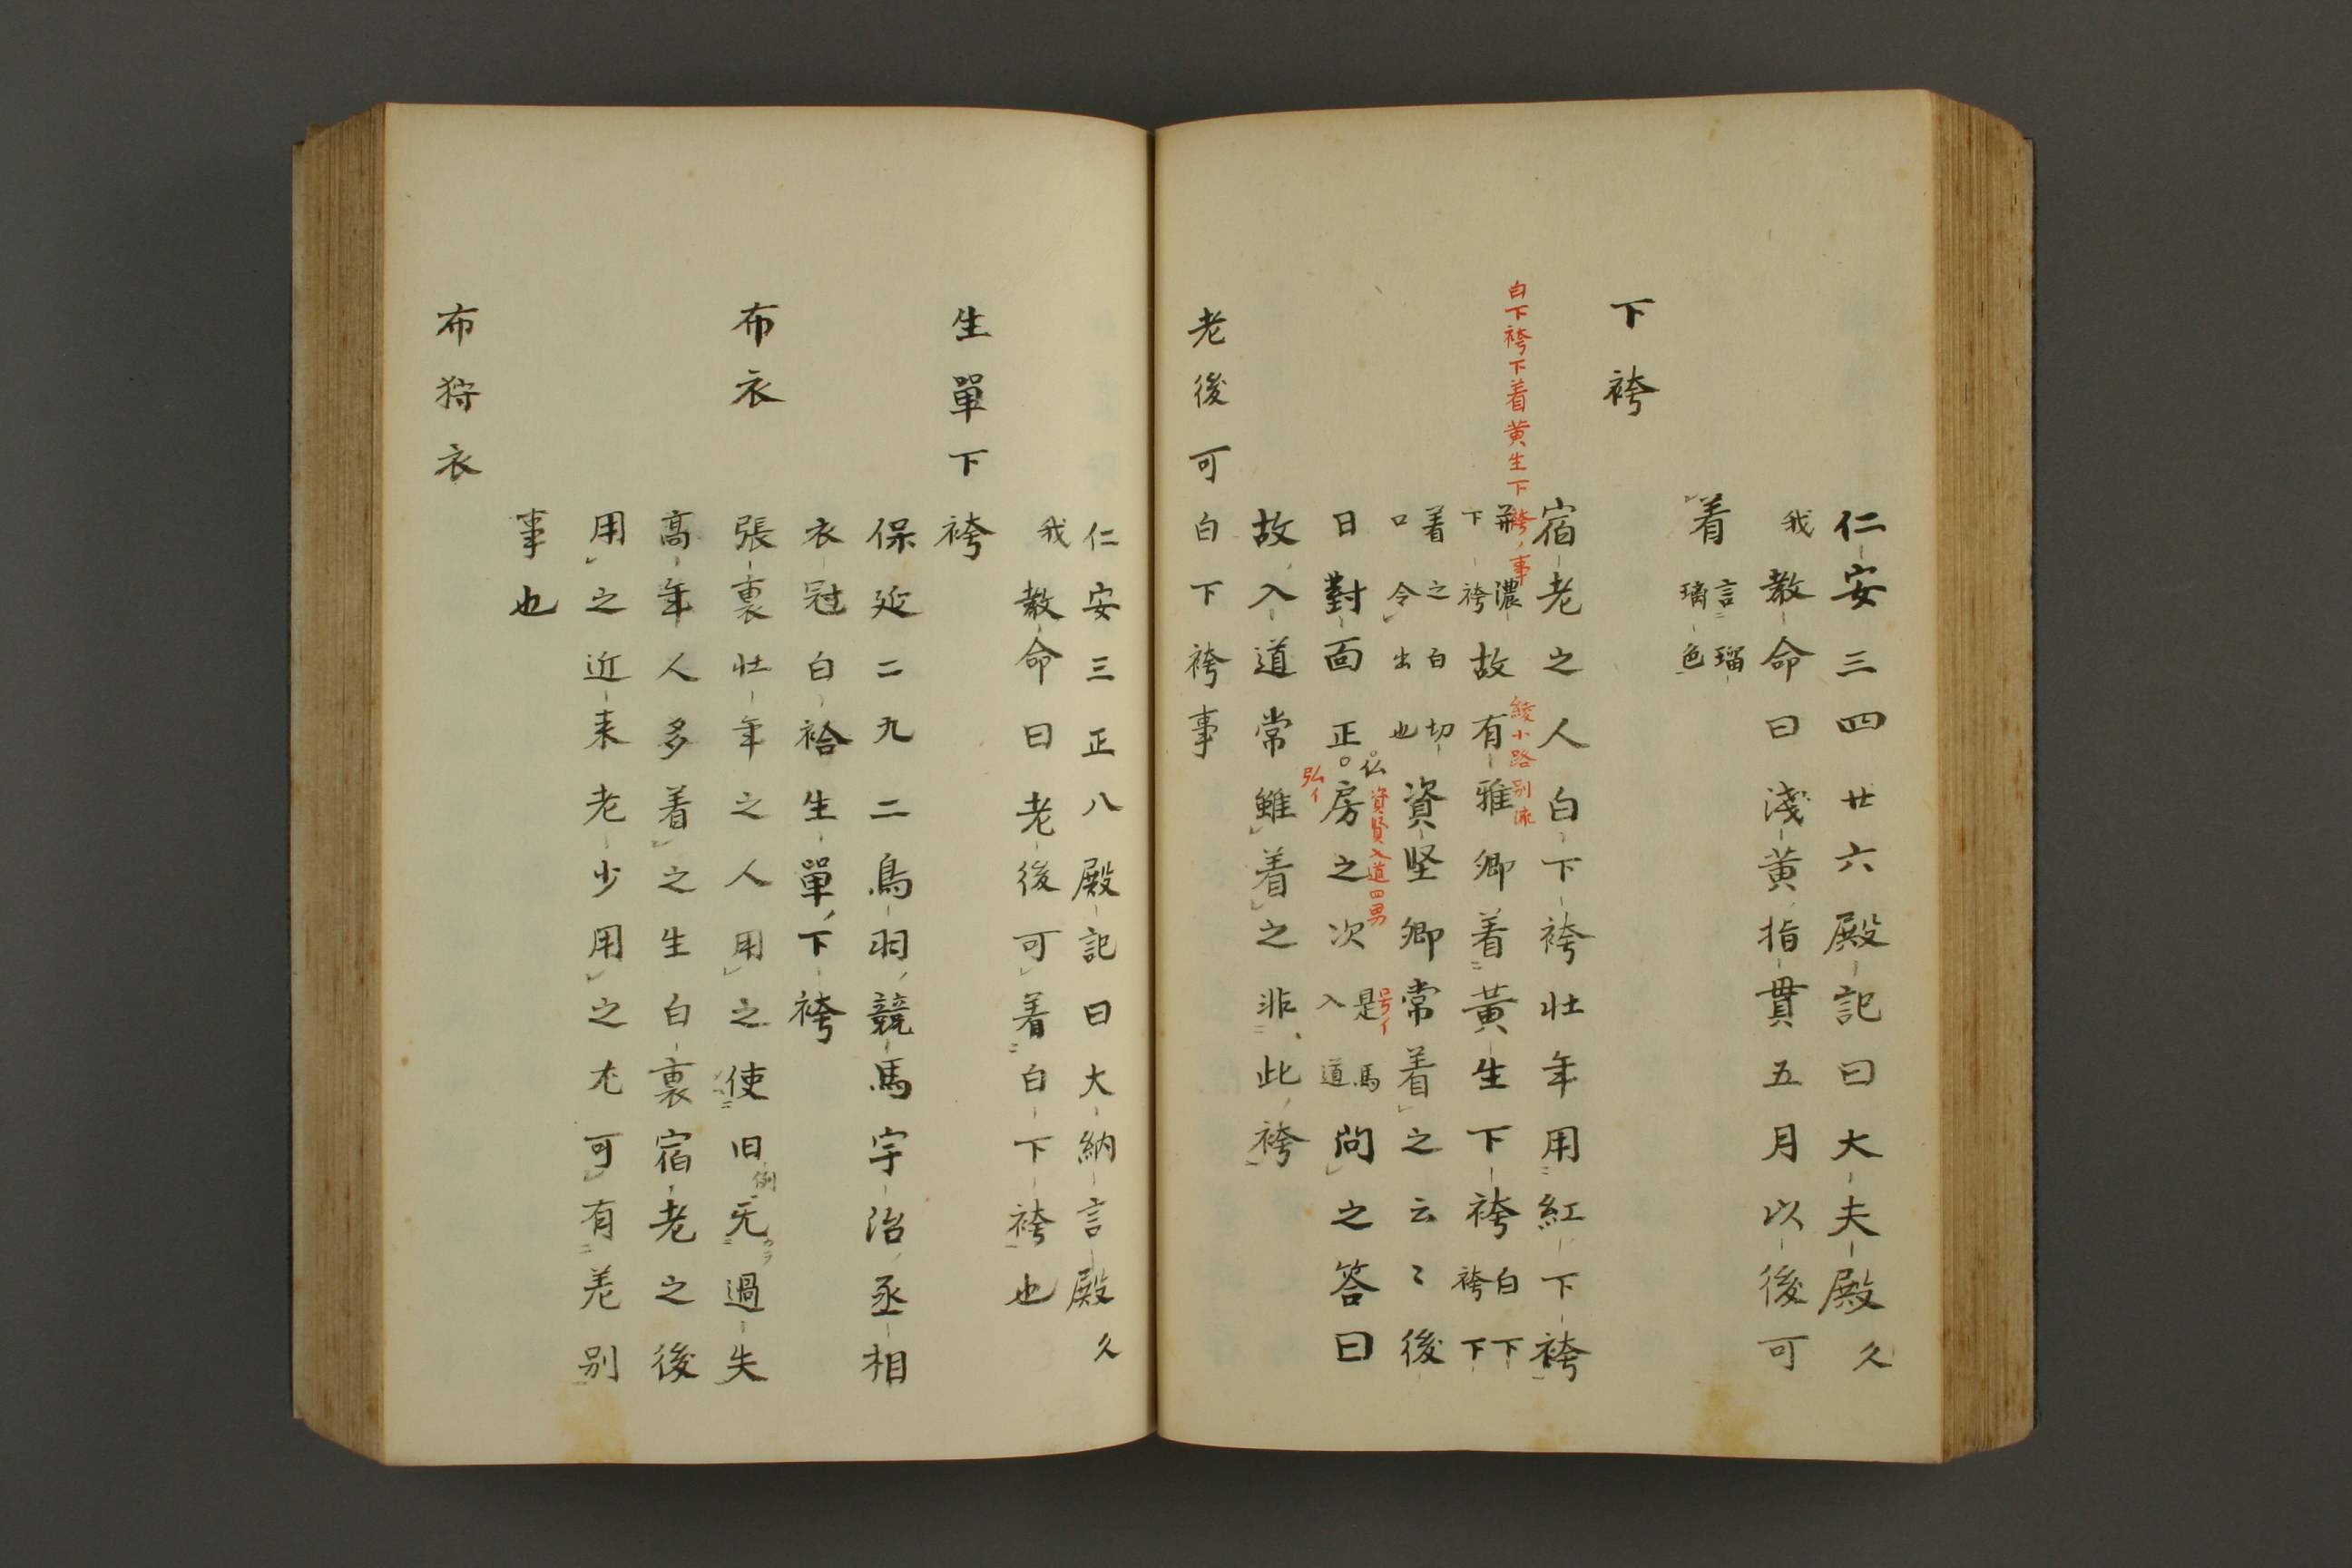 仁安三四廿六殿記曰大夫殿久
我教命曰淺黄指貫五月以後可
着言瑠璃色
下袴
白下袴下着黄生下袴事
宿老之人白下袴壮年用紅下袴
濃下袴故有雅卿着黄生下袴白下袴下
綾小路別流
着之白切口令出也資堅卿常着之云〻後
資賢入道四男
日對面正仏房之次是馬入道尚之答曰
号イ
弘イ
故入道常雖着之非此袴
老後可白下袴事
仁安三正八殿記曰大納言殿久
我教命曰老後可着白下袴也
生單下袴
保延二九二鳥羽競馬宇治丞相
衣冠白袷生單下袴
布衣
張裏壮年之人用之使旧例无過失
高年人多着之生白裏宿老之後
用之近来老少用之尤可有差別
事也
布狩衣